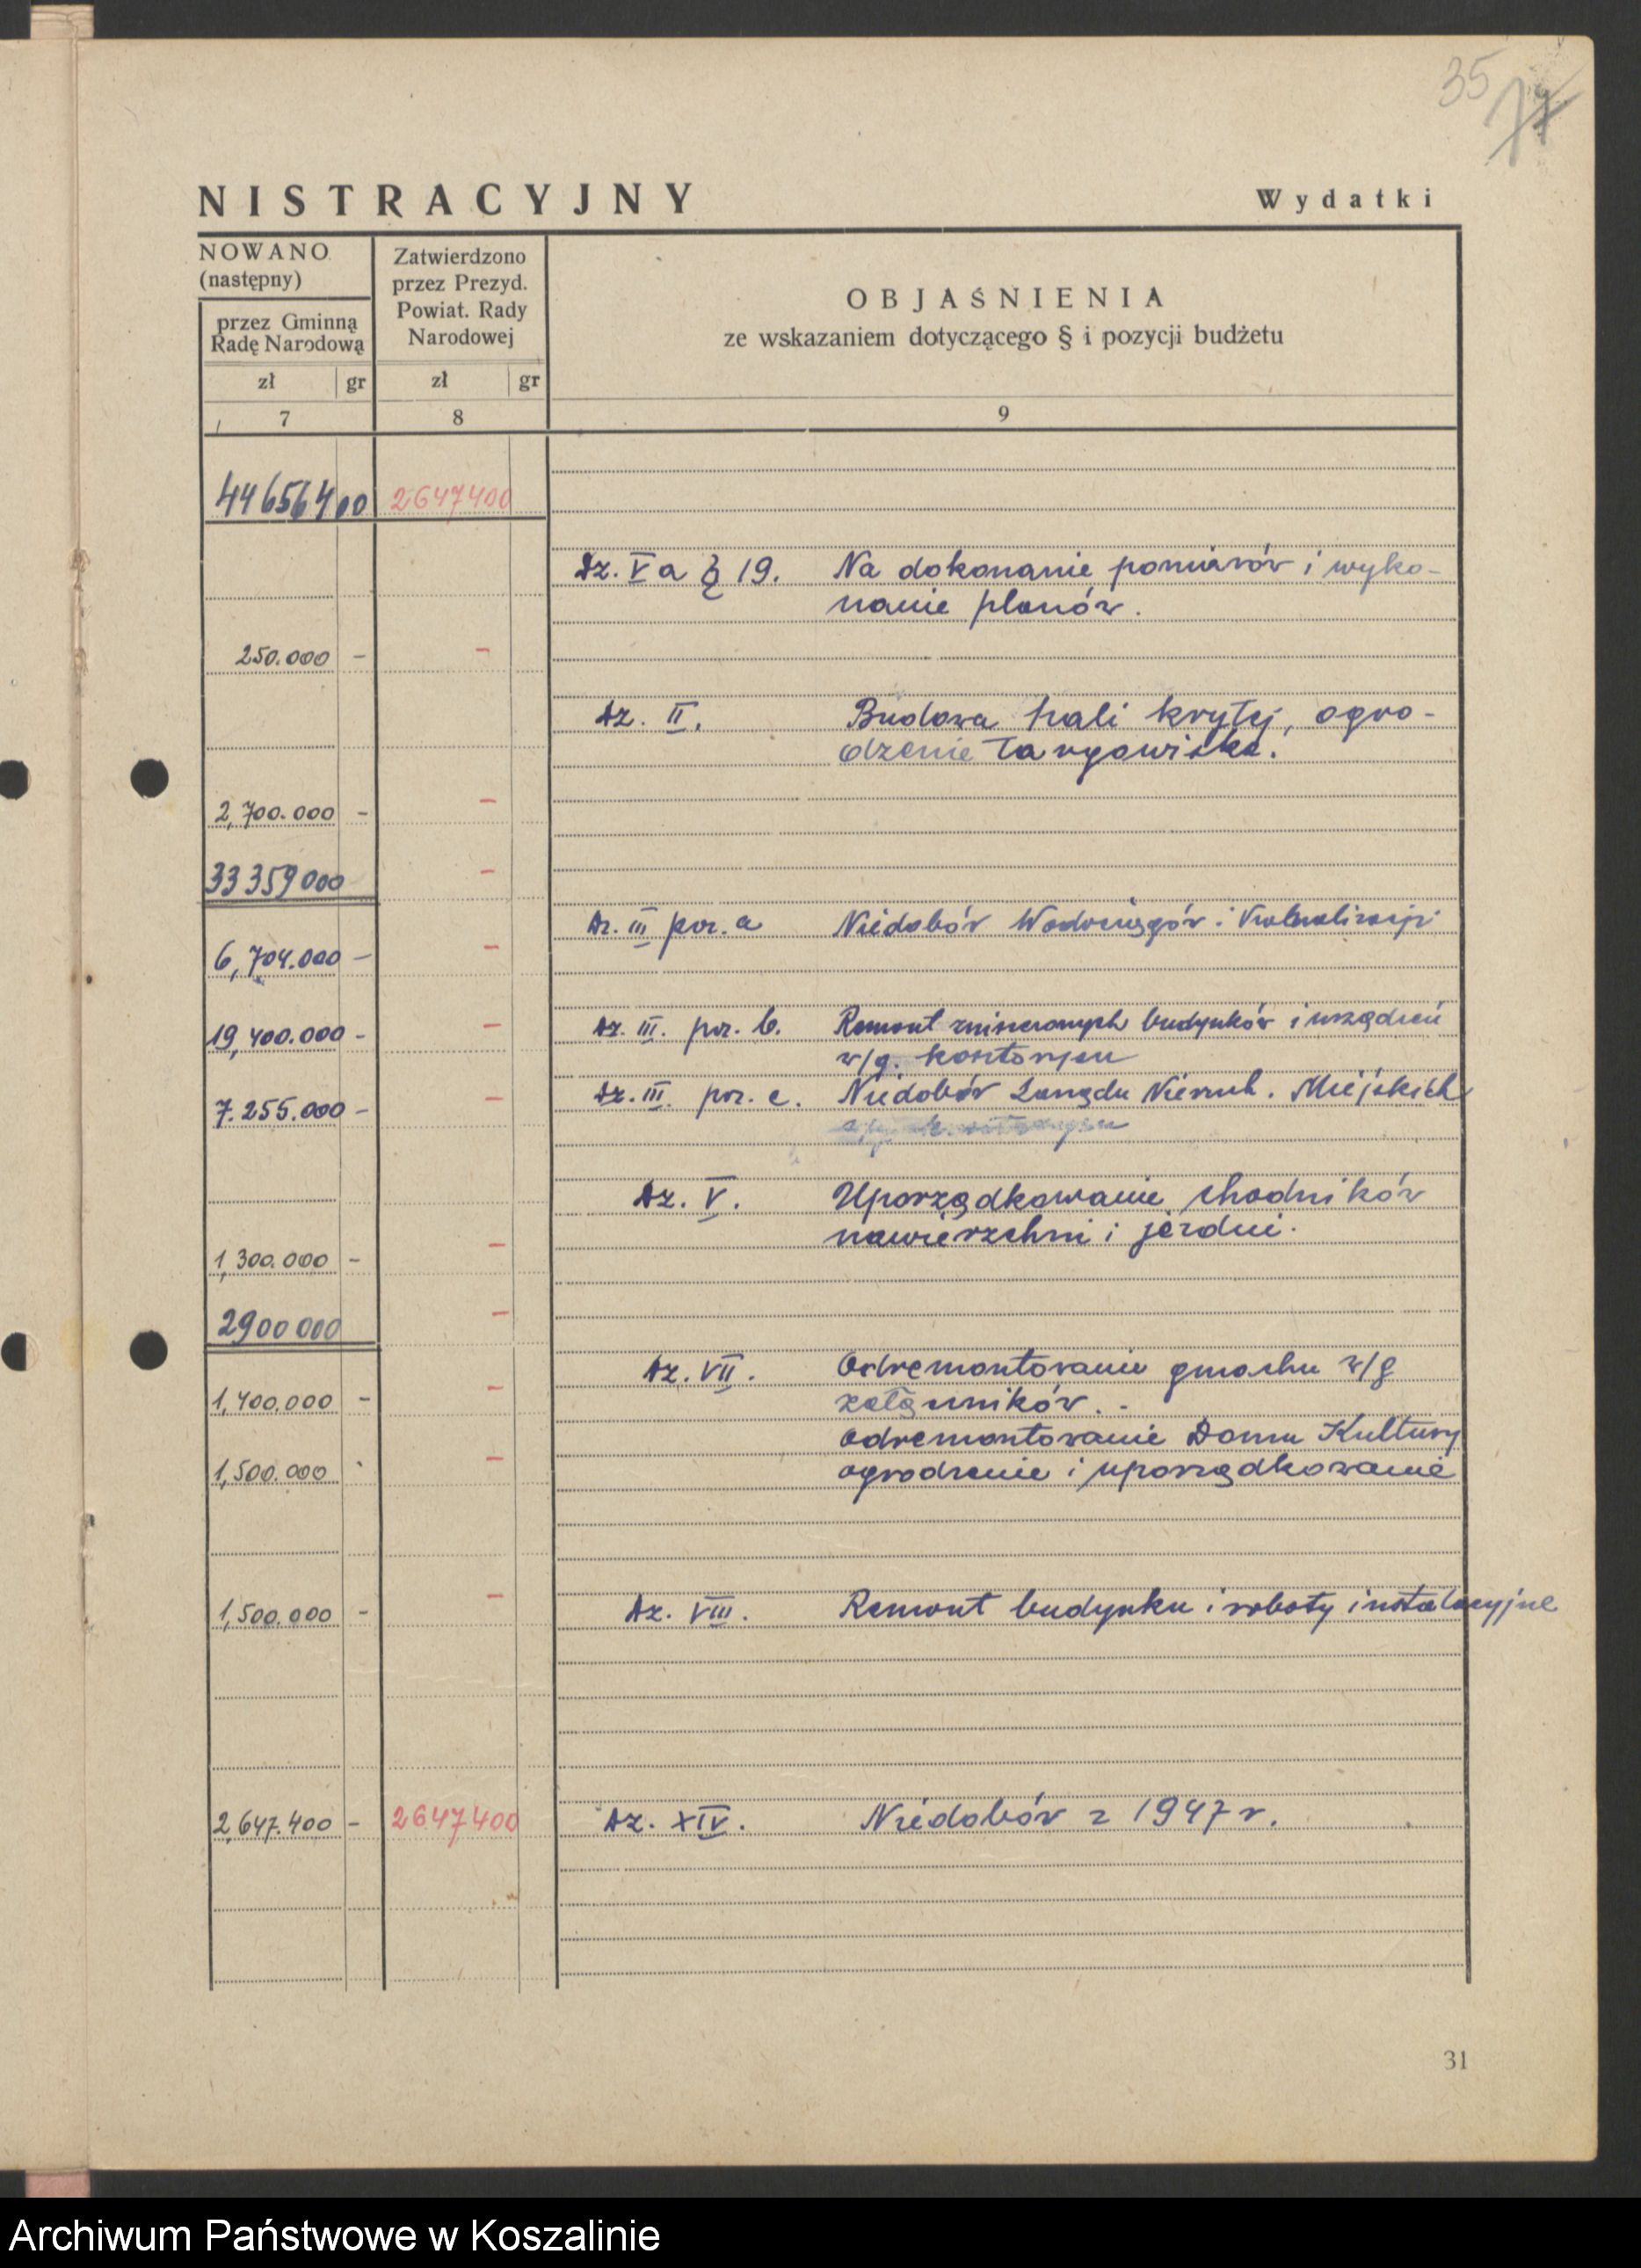 35 77
NISTRACYJNY Wydatki
NOWANO
(następny)
przez Gminną
Radę Narodową
Zatwierdzono
przez Prezyd.
Powiat. Rady
Narodowej
OBJAŚNIENIA
ze wskazaniem dotyczącego § i pozycji budżetu
zł gr zł gr
7 8 9
44656400 2647400
Dz. V a § 19. Na dokonanie pomiarów i wyko-
nanie planów.
250.000 - -
Dz. II. Budowa hali krytej, ogro-
dzenie targowiska.
2,700.000 - -
33 359 000 -
Dz. III poz. a Niedobór Wodociągów i Kanalizacji
6,704.000 - -
19,400.000 - - Dz. III. poz. b. Remont zniszczonych budynków i urządzeń
w/g. kosztorysu
7.255.000 - - Dz. III. poz. c. Niedobór Zarządu Nieruch. Miejskich
Dz. V. Uporządkowanie chodników
nawierzchni i jezdni.
1,300.000 - -
2900 000 -
Dz. VII. Odremontowanie gmachu w/g
1,400.000 - - załączników. -
Odremontowanie Domu Kultury
1,500.000 - ogrodzenie i uporządkowanie
1,500.000 - - Dz. VIII. Remont budynku i roboty instalacyjne
2,647.400 - 2647400 Dz. XIV. Niedobór z 1947 r.
31
Archiwum Państwowe w Koszalinie